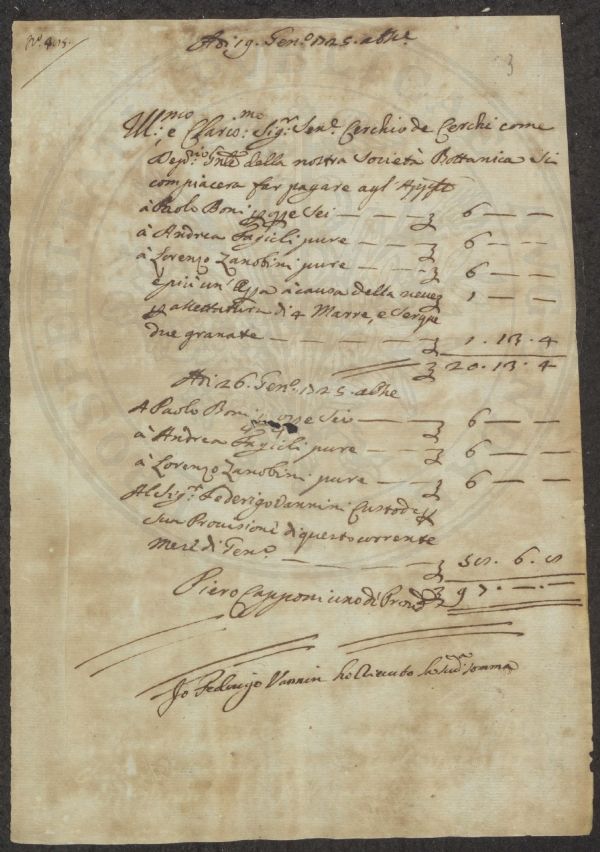 Adi 19. Genº 1725. ab Inc.
3
M:mo e Clariss:mo Sigr: Senre Cerchio de Cerchi come
Deprio Gnle della nostra Società Bottanica si
compiacera far pagare agl'
à Paolo Boni opre Sei — — — 6 — —
à Andrea Fagioli pure — — — 6 — —
à Lorenzo Zanobini pure — — 6 — —
e più un' opra à causa della neve 1 — —
rassettatura di 4 Marre, e Serque
due granate — — — — 1. 13. 4
20. 13. 4
Adi 26. Genº 1725. ab Inc.
A Paolo Boni opre Sei — — 6 — —
à Andrea Fagioli pure — — 6 — —
à Lorenzo Zanobini pure — — 6 — —
Al Sigr. Federigo Vannini Custode
sua Provisione di questo corrente
mese di Genº. — — — 6.
Piero Capponi uno di Provri 97. — . —
Io Federigo Vannini ho riceuto la sudta somma